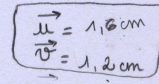 u⃗ = 1,6 cm
v⃗ = 1,2 cm